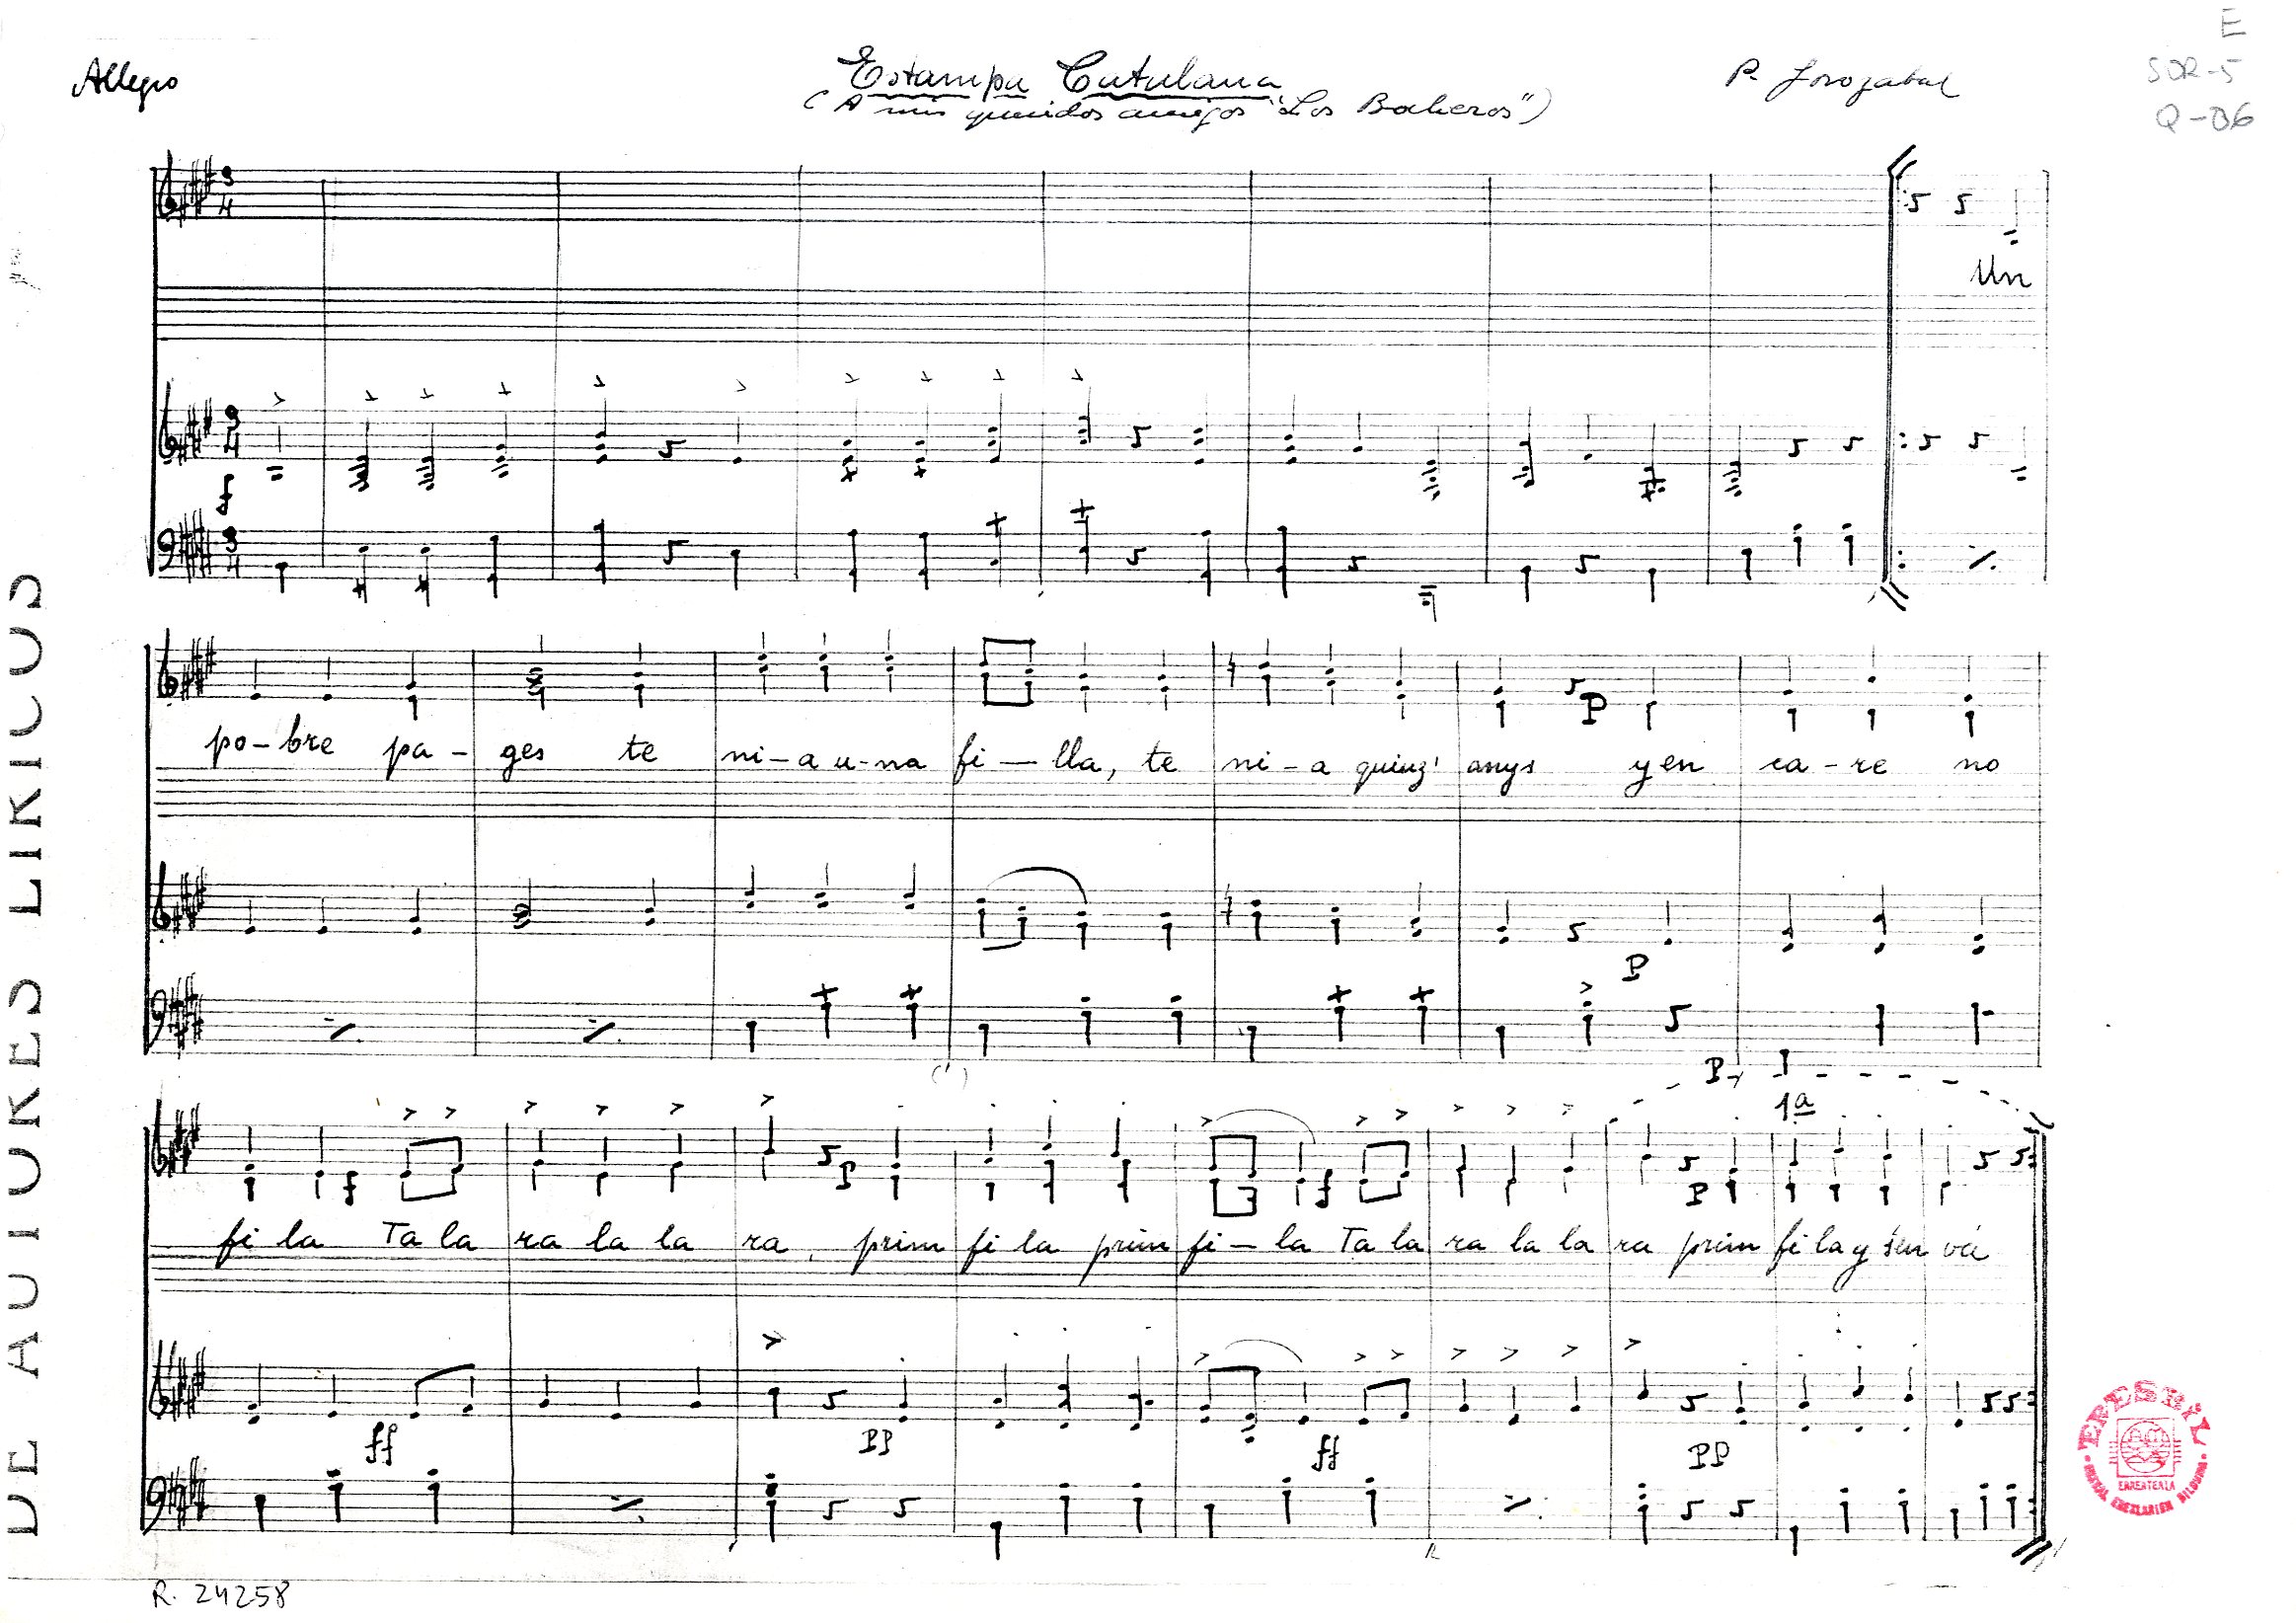 E
SOR-5
Q-06
Allegro
Estampa Catalana
P. Sorozabal
(A mis queridos amigos "Los Bocheros")
3
4
Un
3
4
f
3
4
po-bre pa-ges te ni-a u-na fi-lla, te ni-a quinz' anys yen ca-re no
P
P
P
1ª
f P f P
fi la Ta la ra la la ra, prim fi la prim fi-la Ta la ra la la ra prim fi la y s'en vá
ff PP ff PP
R. 24258
DE AUTORES LIRICOS
ERESBIL
ERRENTERIA